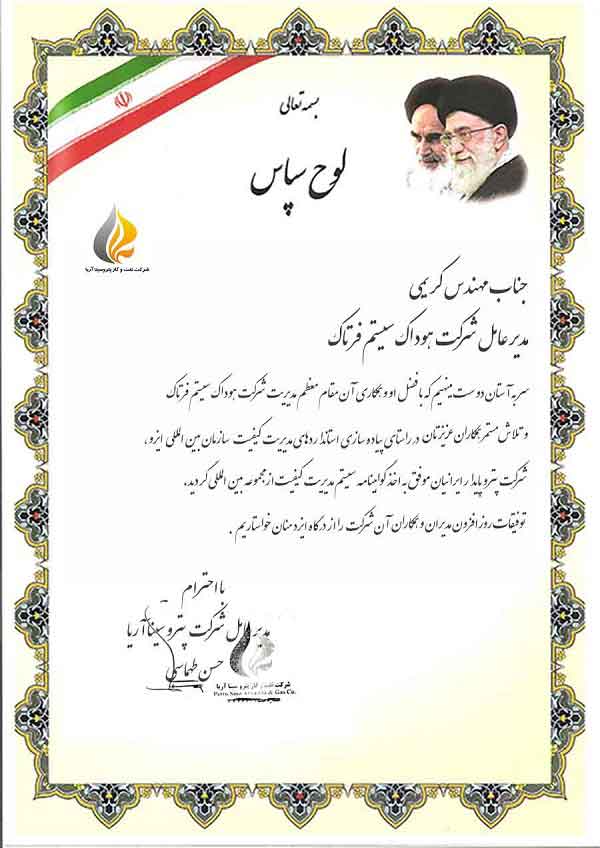 بسمه تعالی
لوح سپاس
شرکت نفت و گاز پتروسینا آریا
جناب مهندس کریمی
مدیر عامل شرکت هوداک سیستم فرتاک
سر به آستان دوست مینهیم که با فضل او و همکاری آن مقام معظم مدیریت شرکت هوداک سیستم فرتاک
و تلاش مستمر همکاران عزیزتان در راستای پیاده سازی استانداردهای مدیریت کیفیت سازمان بین المللی ایزو ،
شرکت پترو پایدار ایرانیان موفق به اخذ گواهینامه سیستم مدیریت کیفیت از مجموعه بین المللی گردید.
توفیقات روز افزون مدیران و همکاران آن شرکت را از درگاه ایزد منان خواستاریم .
با احترام
مدیر عامل شرکت پترو سینا آریا
حسن طهماسبی
شرکت نفت و گاز پترو سینا آریا
Petro Sina & Gas Co.